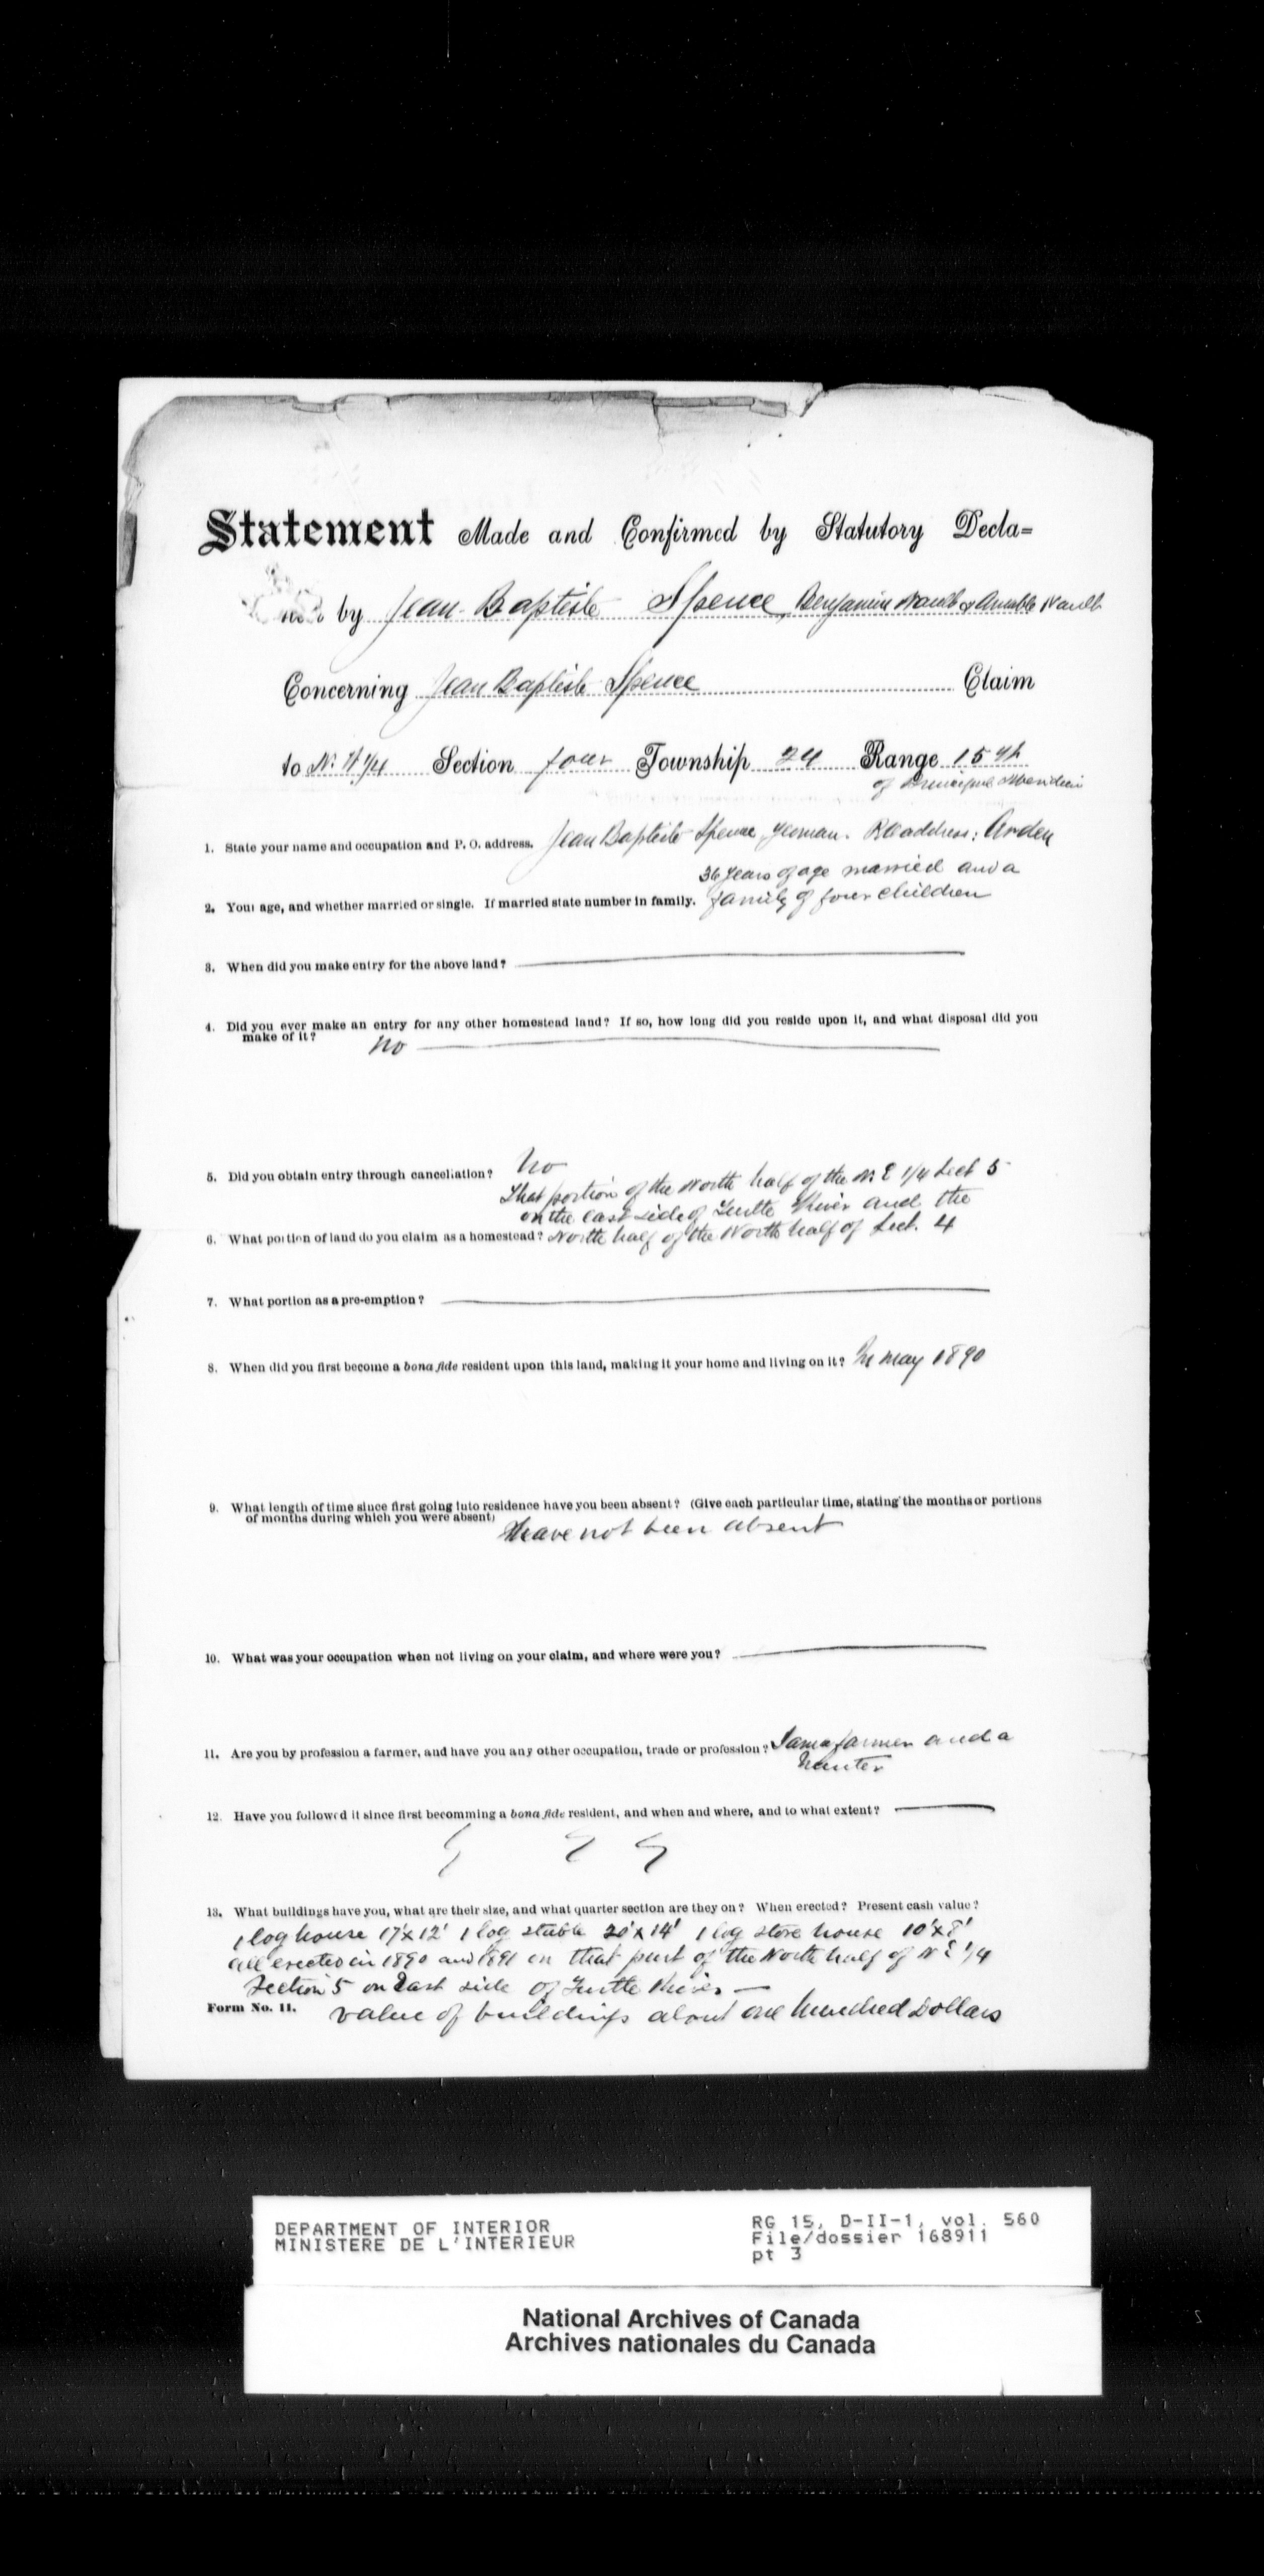 Statement Made and Confirmed by Statutory Decla=
by Jean Baptiste Spence, Benjamin Nault & Amable Nault
Concerning Jean Baptiste Spence Claim
to N. 1/4 Section four Township 24 Range 15 
of Principal Meridian
1. State your name and occupation and P. O. address. Jean Baptiste Spence, yeoman. P.O address: Arden
36 years of age married and a
2. Your age, and whether married or single. If married state number in family. family of four children
3. When did you make entry for the above land?
4. Did you ever make an entry for any other homestead land? If so, how long did you reside upon it, and what disposal did you
make of it? No
5. Did you obtain entry through cancellation? No
That portion of the North half of the N. E 1/4 Sect 5
on the east side of Turtle River and the
6. What portion of land do you claim as a homestead? North half of the North half of Sect. 4
7. What portion as a pre-emption?
8. When did you first become a bona fide resident upon this land, making it your home and living on it? In May 1890
9. What length of time since first going into residence have you been absent? (Give each particular time, stating the months or portions
of months during which you were absent) Have not been absent
10. What was your occupation when not living on your claim, and where were you?
11. Are you by profession a farmer, and have you any other occupation, trade or profession? I am a farmer and a
hunter
12. Have you followed it since first becomming a bona fide resident, and when and where, and to what extent?
13. What buildings have you, what are their size, and what quarter section are they on? When erected? Present cash value?
1 log house 17'x12' 1 log stable 20'x14' 1 log store house 10'x8'
all erected in 1890 and 1891 on that part of the North half of N E 1/4
Section 5 on East side of Turtle River —
Form No. 11. value of buildings about one hundred Dollars
DEPARTMENT OF INTERIOR
MINISTERE DE L'INTERIEUR
RG 15, D-II-1, vol. 560
File/dossier 168911
pt 3
National Archives of Canada
Archives nationales du Canada